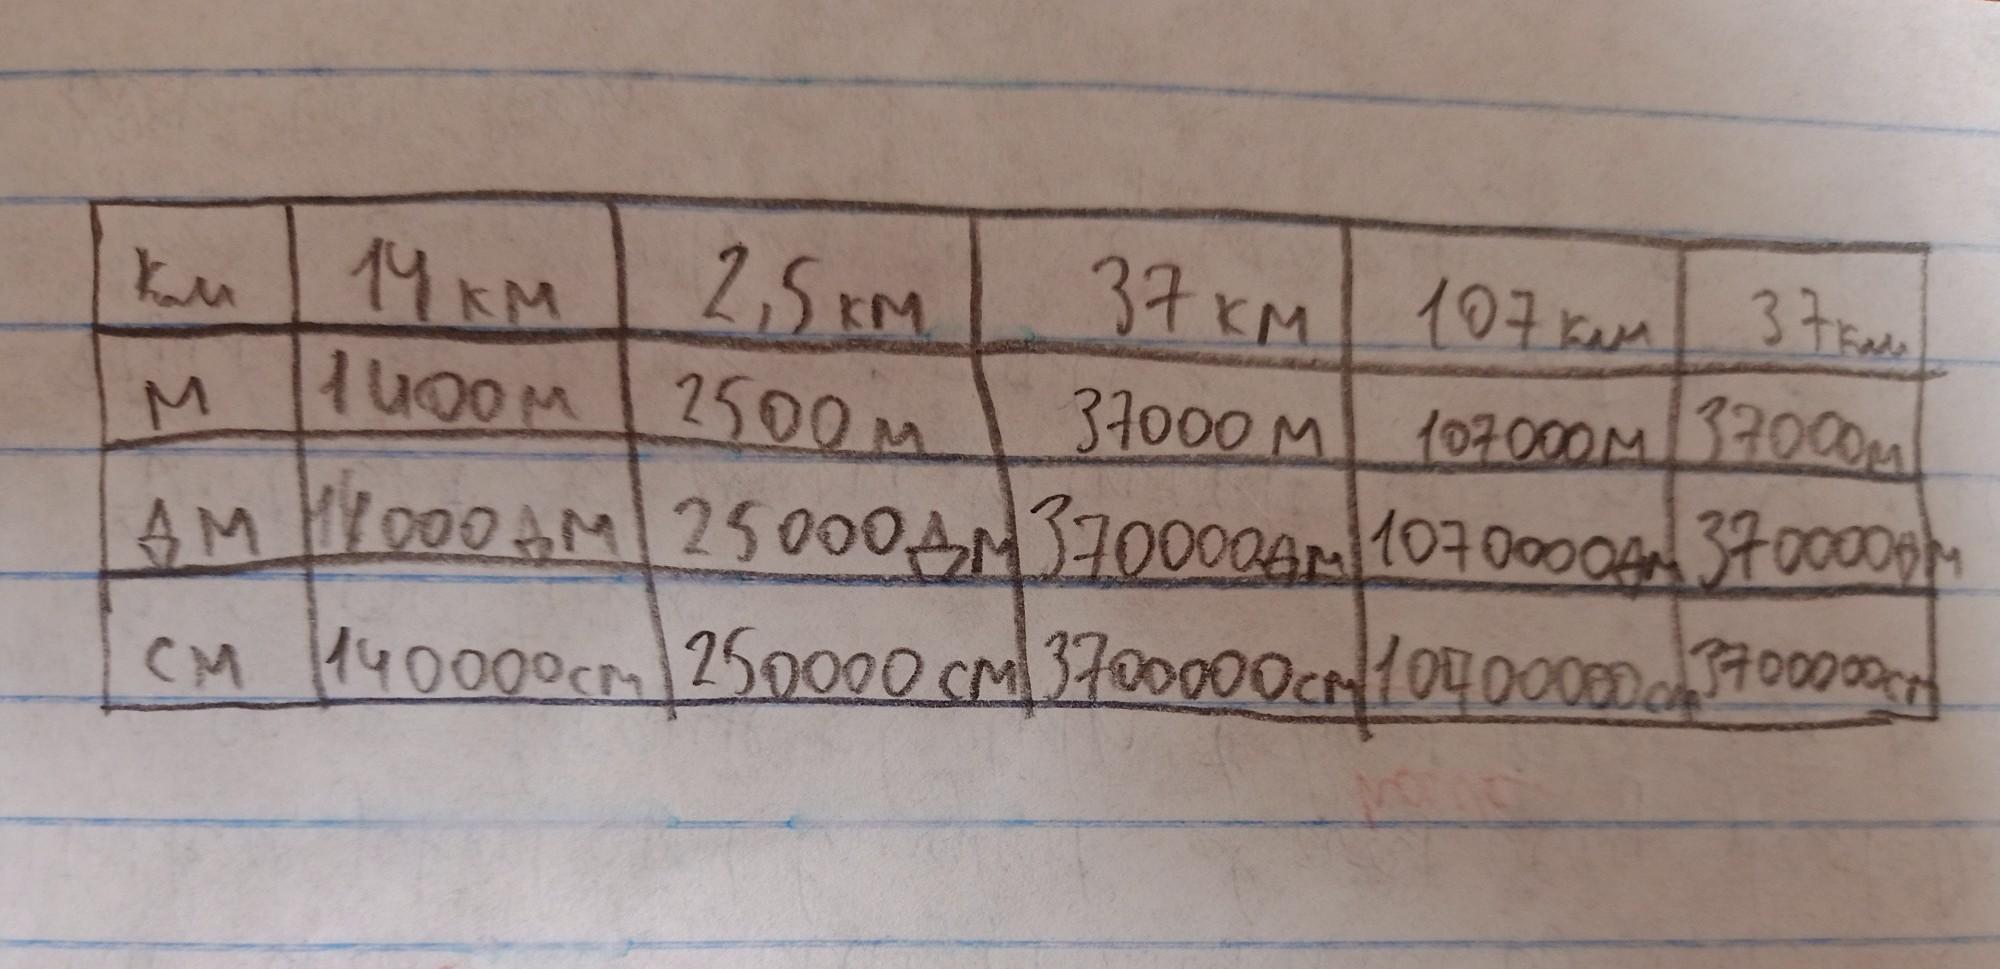 км 14 км 2,5 км 37 км 107 км 37 км
м 1400 м 2500 м 37000 м 107000 м 37000 м
дм 14000 дм 25000 дм 370000 дм 1070000 дм 370000 дм
см 140000 см 250000 см 3700000 см 10700000 см 3700000 см